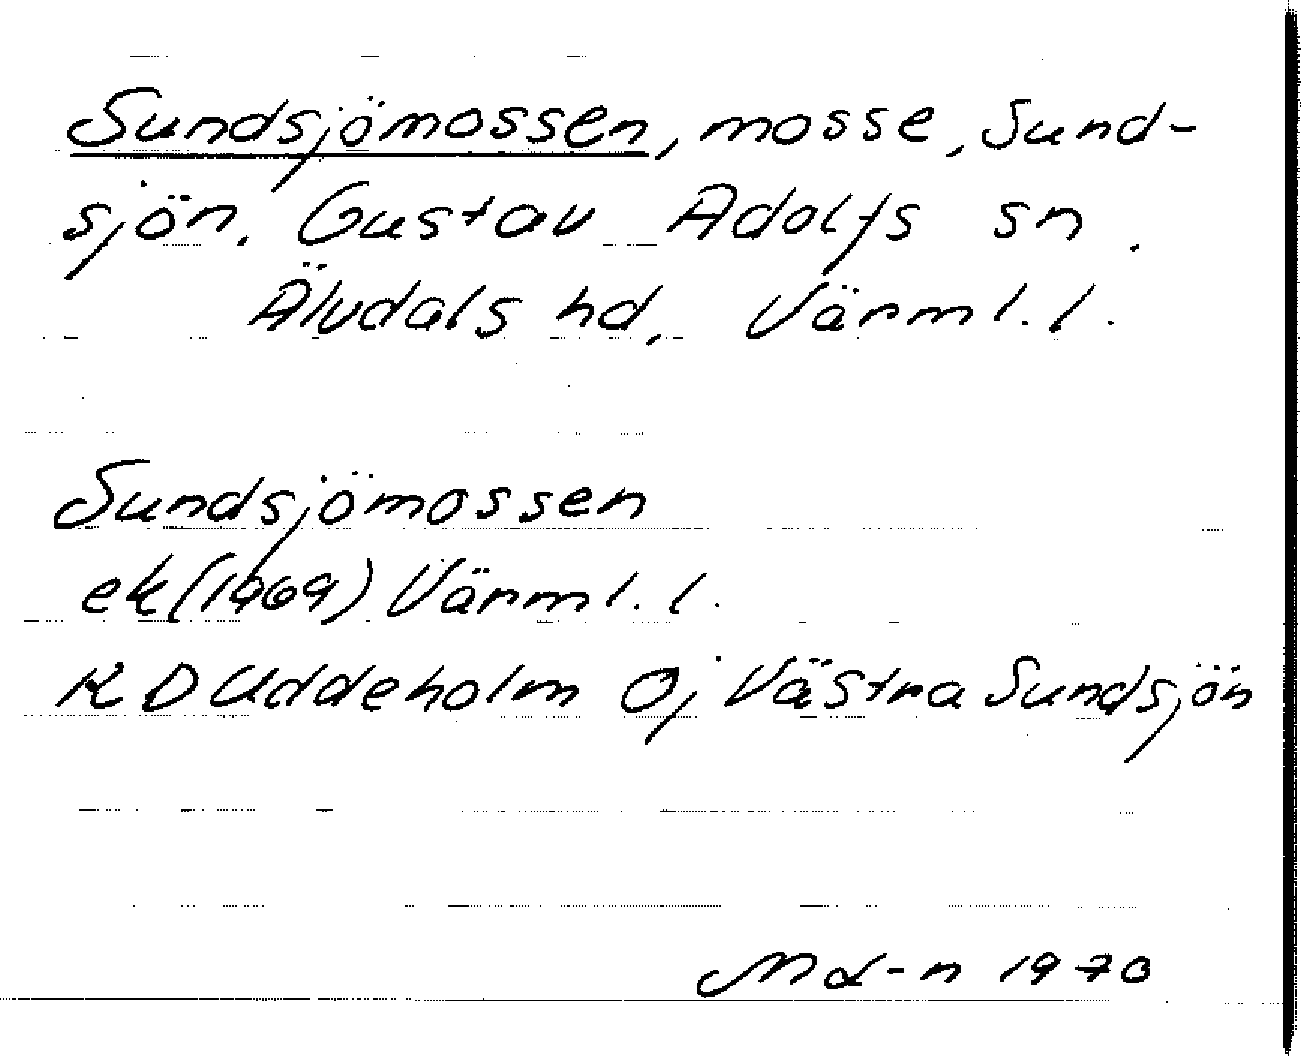 Sundsjömossen, mosse, Sund-
sjön. Gustav Adolfs sn.
Älvdals hd, Värml. l.
Sundsjömossen
ek (1969) Värml. l.
K D Uddeholm Oj Västra Sundsjön
1970